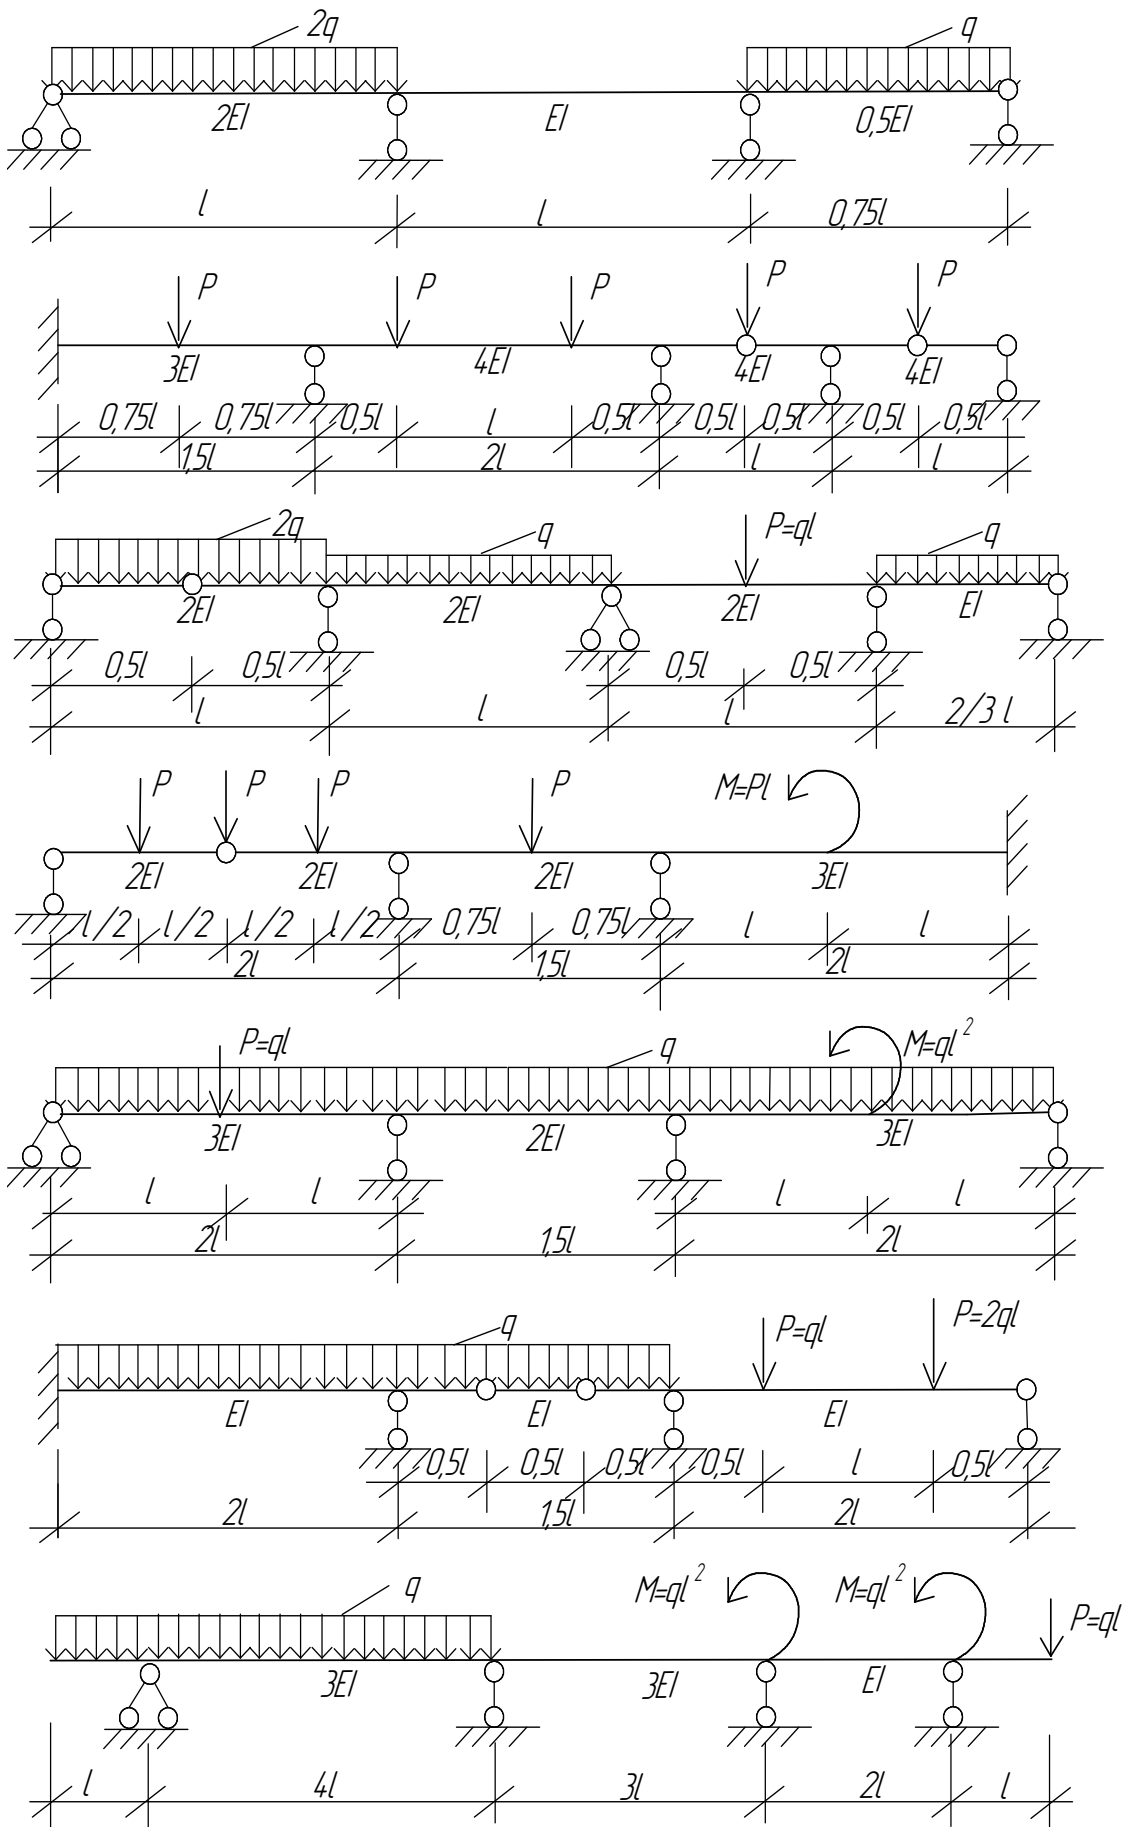 2q q
2EI EI 0,5EI
l l 0,75l
P P P P P
3EI 4EI 4EI 4EI
0,75l 0,75l 0,5l l 0,5l 0,5l 0,5l 0,5l 0,5l
1,5l 2l l l
2q q P=ql q
2EI 2EI 2EI EI
0,5l 0,5l 0,5l 0,5l
l l l 2/3 l
P P P P M=Pl
2EI 2EI 2EI 3EI
l/2 l/2 l/2 l/2 0,75l 0,75l l l
2l 1,5l 2l
P=ql q M=ql²
3EI 2EI 3EI
l l l l
2l 1,5l 2l
q P=ql P=2ql
EI EI EI
0,5l 0,5l 0,5l 0,5l l 0,5l
2l 1,5l 2l
q M=ql² M=ql² P=ql
3EI 3EI EI
l 4l 3l 2l l